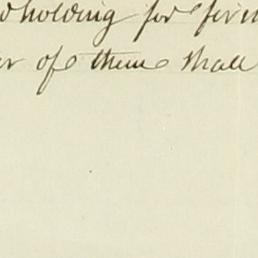 holding for
of them shall